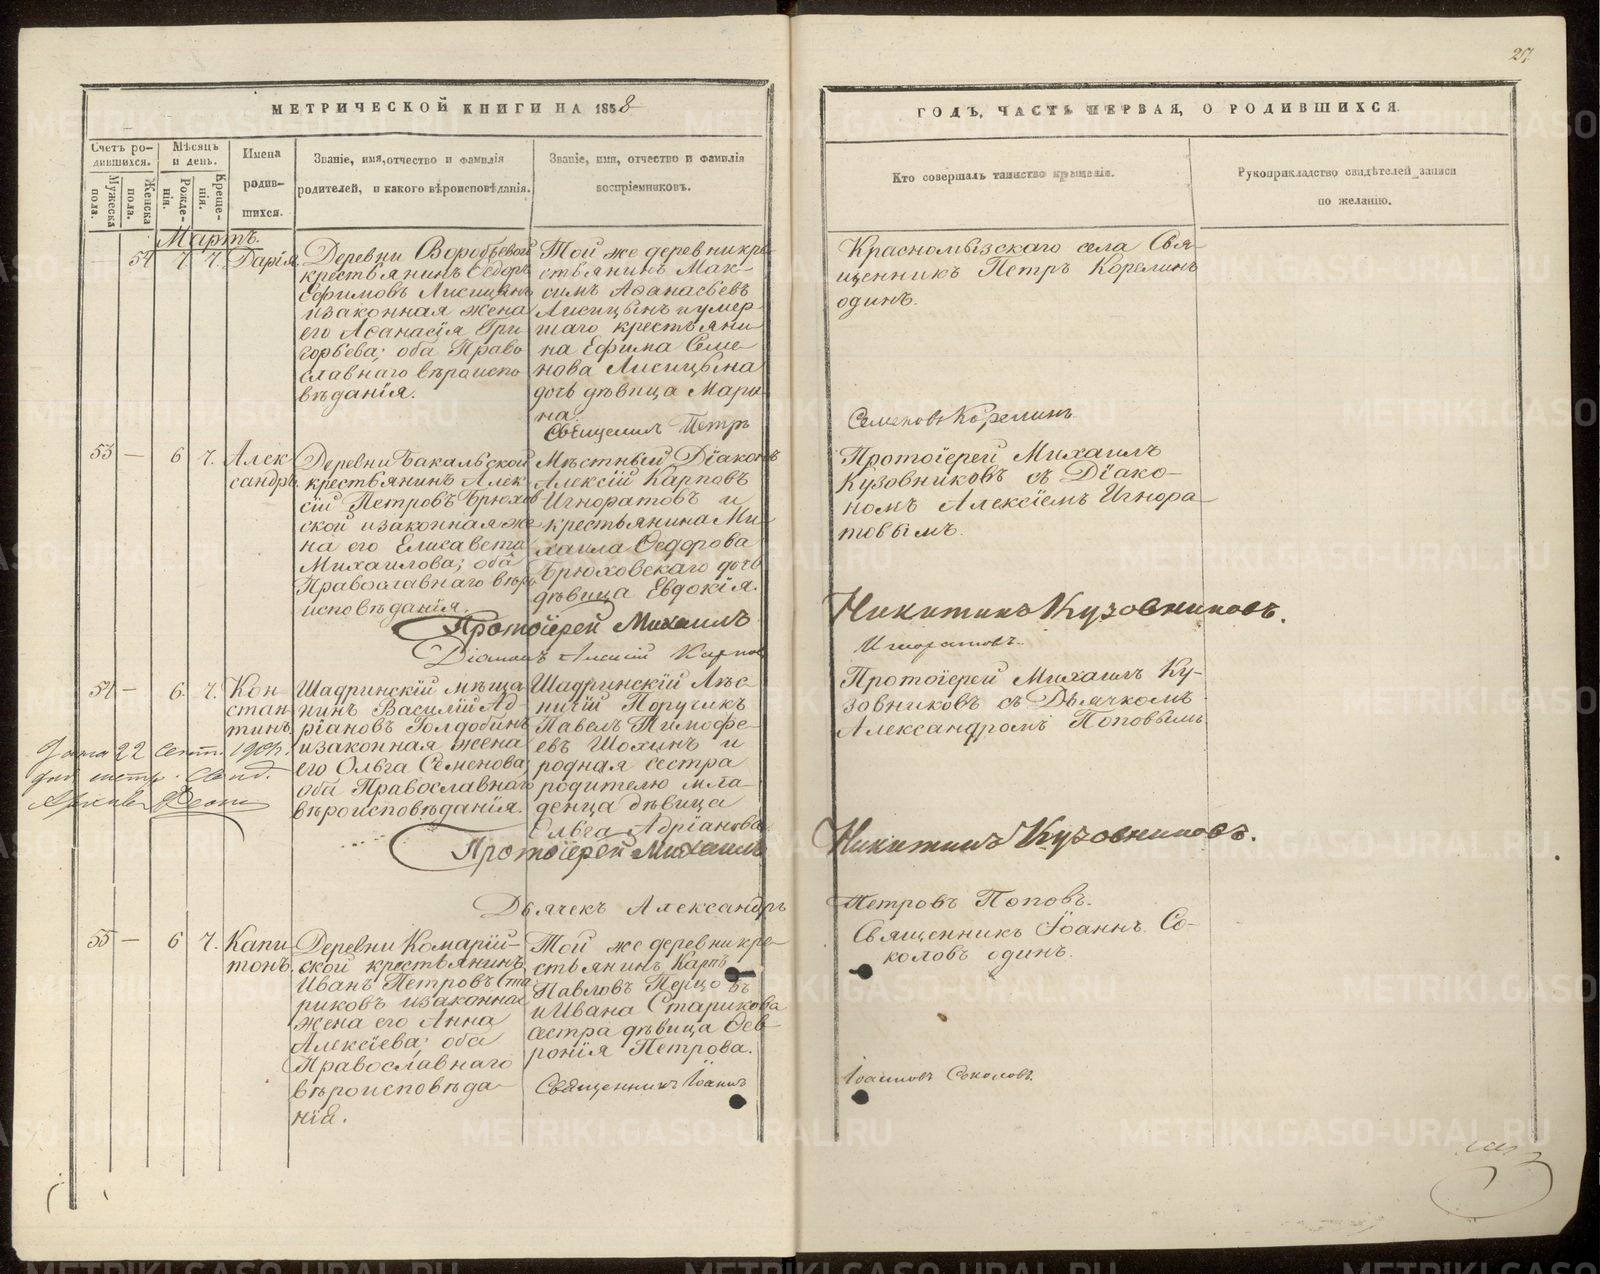 29
МЕТРИЧЕСКОЙ КНИГИ НА 1858
ГОДЪ, ЧАСТЬ ПЕРВАЯ, О РОДИВШИХСЯ.
Счетъ ро-
дившихся.
Мужеска
пола.
Женска
пола.
Мѣсяцъ
и день.
Рожде-
нія.
Креще-
нія.
Имена
родив-
шихся.
Званіе, имя, отчество и фамилія
родителей, и какого вѣроисповѣданія.
Званіе, имя, отчество и фамилія
воспріемниковъ.
Кто совершалъ таинство крещенія.
Рукоприкладство свидѣтелей записи
по желанію.
Мартъ.
7. 7. Дарія
Деревни Воробьевой
крестьянинъ Ѳедоръ
Ефимовъ Лисицынъ
и законная жена
его Аѳанасія Гри
горьева; оба Право
славнаго вѣроиспо
вѣданія.
Той же деревни кре
стьянинъ Мак-
симъ Аѳанасьевъ
Лисицынъ и умер-
шаго крестьяни
на Ефима Семе
нова Лисицына
дочь дѣвица Мари
на.
Священникъ Петръ
Красномызскаго села Свя-
щенникъ Петръ Корелинъ
одинъ.
Семеновъ Корелинъ
53 — 6 7. Алек
сандръ.
Деревни Бакальской
крестьянинъ Алек
сій Петровъ Брюхов
ской и законная же
на его Елисавета
Михаилова; оба
Православнаго вѣро
исповѣданія.
Мѣстный Діаконъ
Алексій Карповъ
Игноратовъ и
крестьянина Ми-
хаила Ѳедорова
Брюховскаго дочь
дѣвица Евдокія.
Протоіерей Михаилъ
Діаконъ Алексій Карпов
Протоіерей Михаилъ
Кузовниковъ съ Діако-
номъ Алексіемъ Игнора
товымъ.
Никитинъ Кузовниковъ.
Игноратовъ.
54 — 6. 7. Кон-
стан-
тинъ.
Шадринскій мѣща
нинъ Василій Ад-
ріановъ Голдобинъ
и законная жена
его Ольга Семенова
оба Православнаго
вѣроисповѣданія.
Шадринскій Лѣс-
ничій Поручикъ
Павелъ Тимофе-
евъ Шохинъ и
родная сестра
родителю мла-
денца дѣвица
Ольга Адріанова.
Протоіерей Михаилъ
Дьячекъ Александръ
Протоіерей Михаилъ Ку-
зовниковъ съ Дьячкомъ
Александромъ Поповымъ
Никитинъ Кузовниковъ.
Петровъ Поповъ.
22 сент.
55 — 6 7. Капи-
тонъ.
Деревни Комарій-
ской крестьянинъ
Иванъ Петровъ Ста
риковъ и законная
жена его Анна
Алексіева; оба
Православнаго
вѣроисповѣда-
нія.
Той же деревни кре-
стьянинъ Карпъ
Павловъ
и Ивана Старикова
сестра дѣвица Ѳев-
ронія Петрова.
Священникъ Іоаннъ
Священникъ Іоаннъ Со-
коловъ одинъ.
Іоанновъ Соколовъ.
METRIKI.GASO-URAL.RU